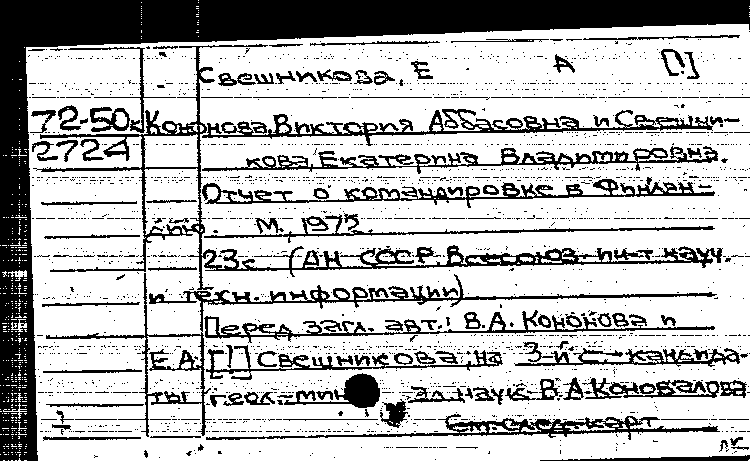 Свешникова, Е А [!]
72-50к Кононова, Виктория Аббасовна и Свешни-
2724 кова, Екатерина Владимировна.
Отчет о командировке в Финлян-
дию. М., 1972.
23с (АН СССР. Всесоюз. ин-т науч.
и техн. информации)
Перед загл. авт.: В.А. Кононова и
Е.А. [!] Свешникова, на 3-й с. - кандида-
ты геол.-мин наук В.А. Коновалова
См. след. карт.